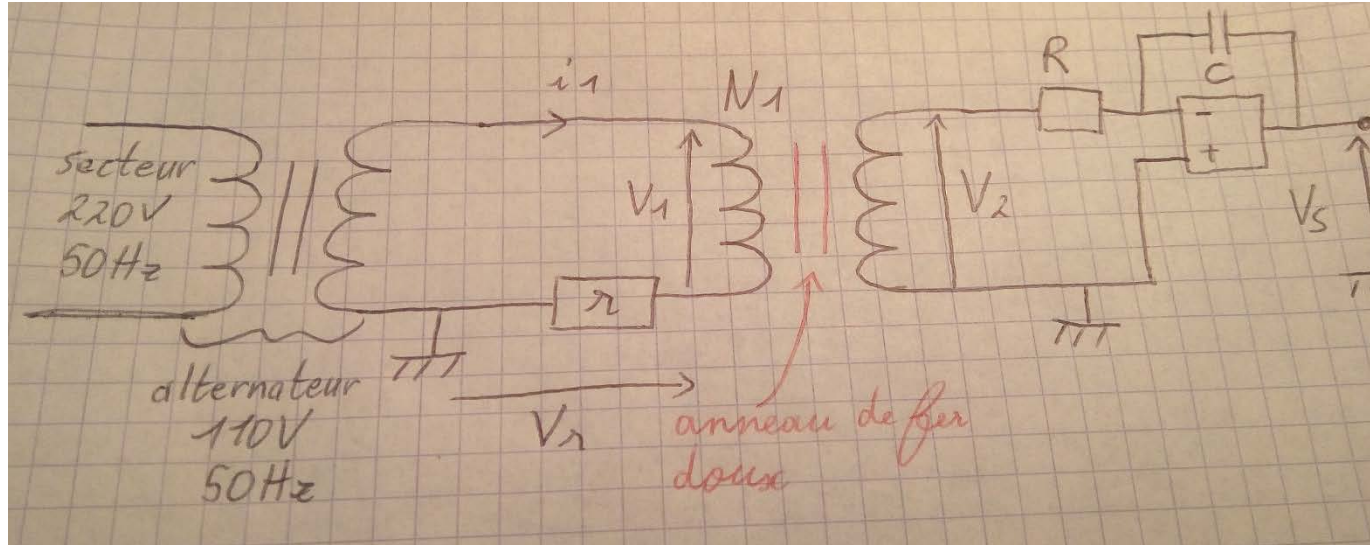 secteur
220V
50Hz
alternateur
110V
50Hz
i1
N1
V1
r
Vr
anneau de fer
doux
V2
R
C
-
+
Vs